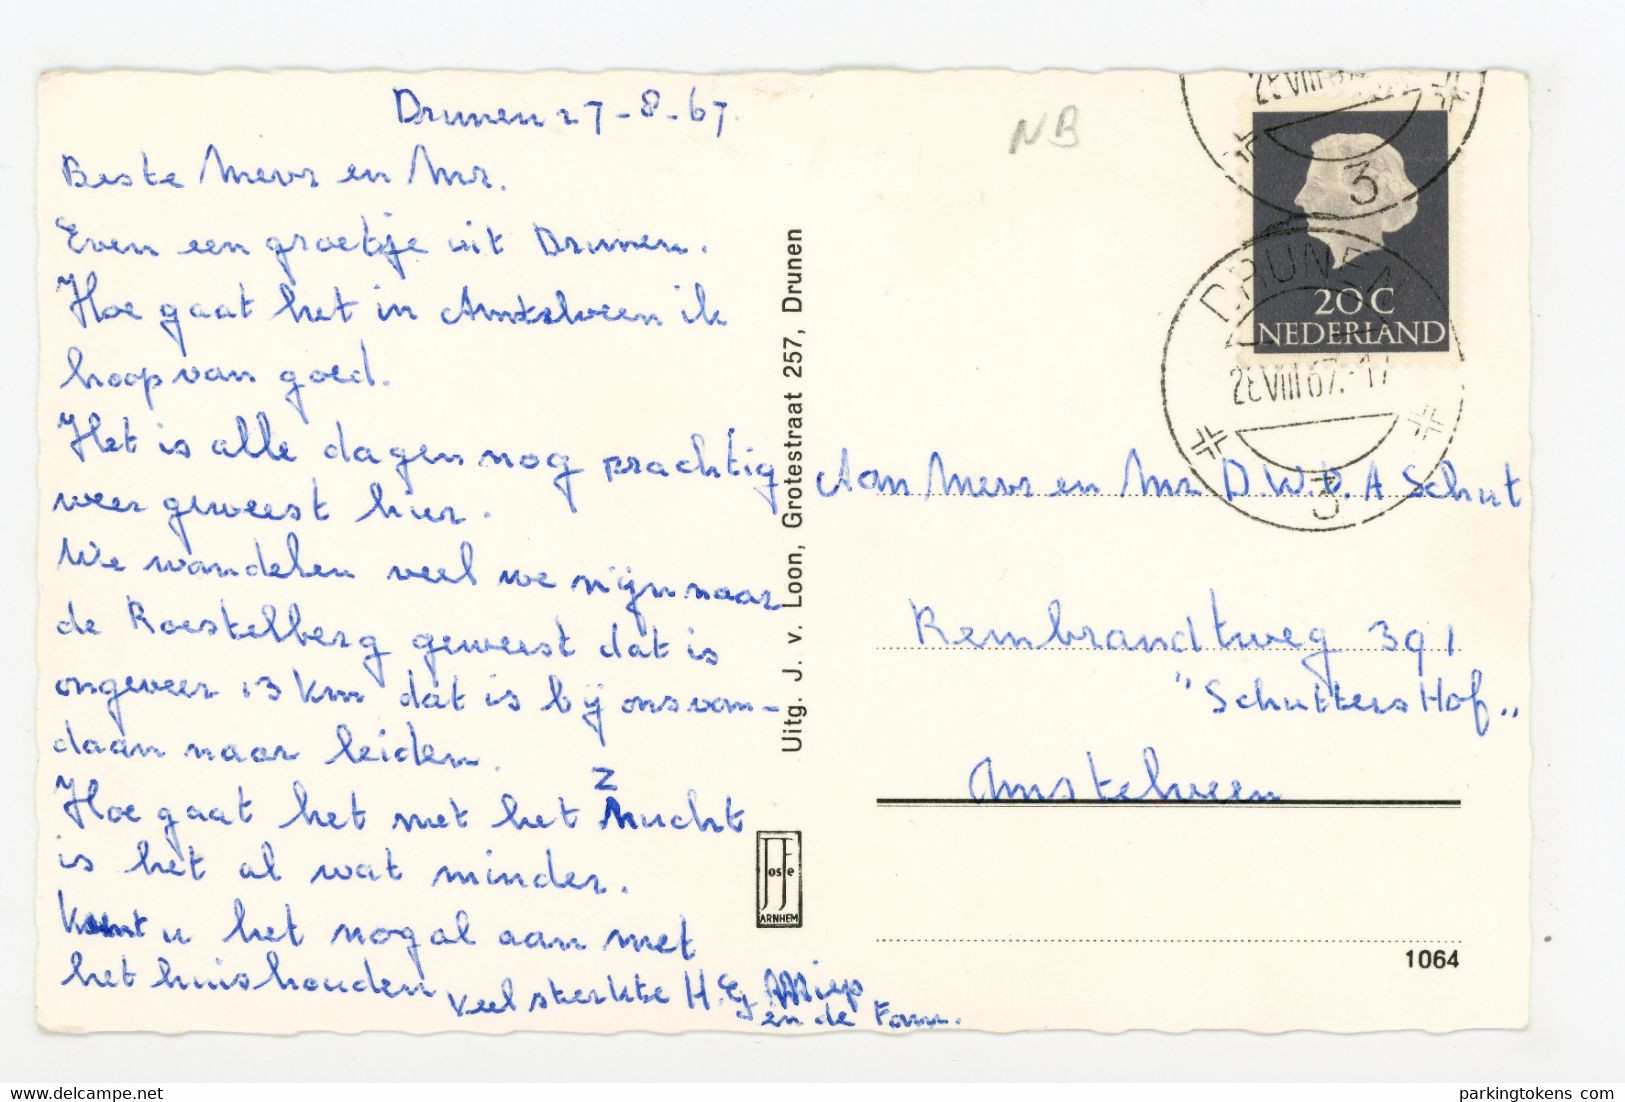 Drunen 27-8-67.
Beste Mevr en Mr.
Even een groetje uit Drunen.
Hoe gaat het in Amstelveen ik
hoop van goed.
Het is alle dagen nog prachtig
weer geweest hier.
We wandelen veel we zijn naar
de Roestelberg geweest dat is
ongeveer 13 km dat is bij ons van-
daan naar leiden.
Hoe gaat het met het zucht
is het al wat minder.
Kunt u het nogal aan met
het huishouden
veel sterkte H. Miep
en de Fam.
Uitg. J. v. Loon, Grotestraat 257, Drunen
JosPe
ARNHEM
NB
28 VIII 67
3
DRUNEN
20C
NEDERLAND
28 VIII 67.-17
3
Aan Mevr en Mr D.W.P. A Schut
Rembrandtweg 391
"Schutters Hof"
Amstelveen
1064
www.delcampe.net
parkingtokens.com